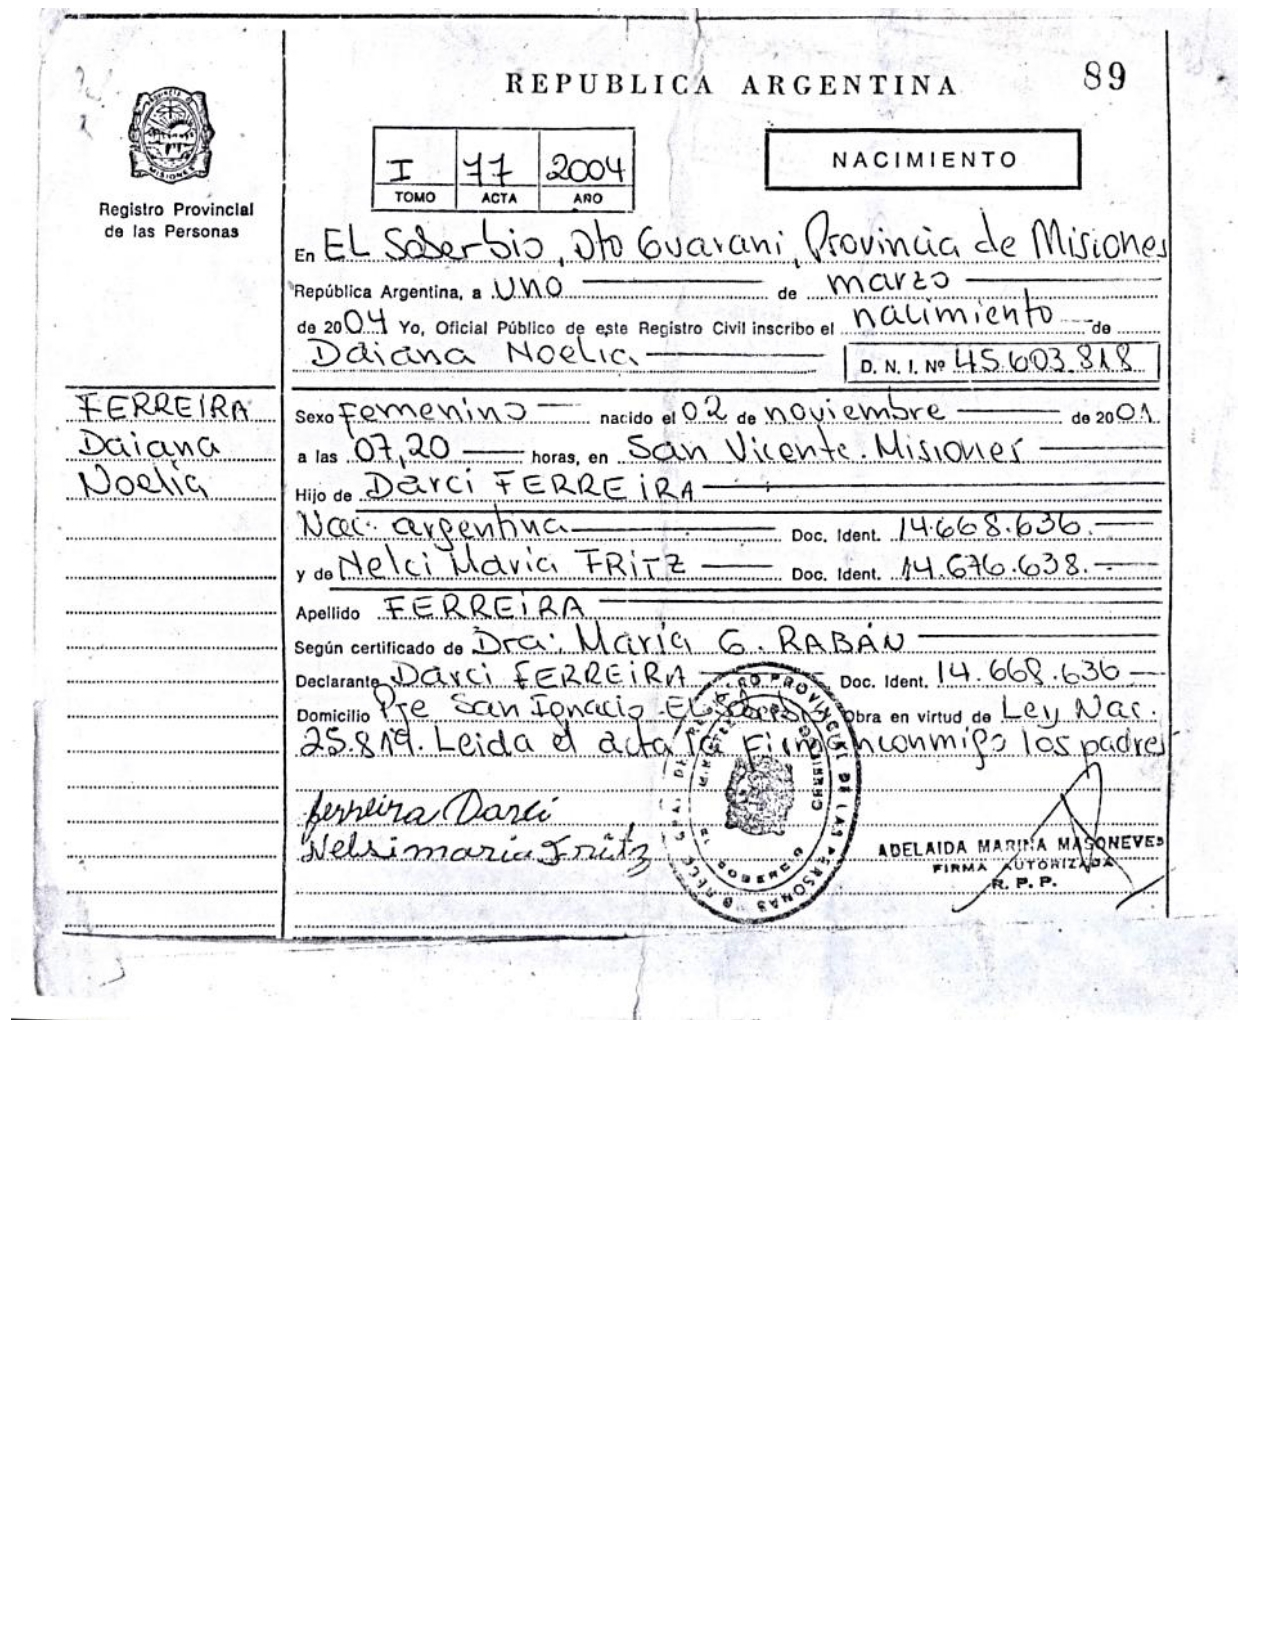 REPUBLICA ARGENTINA
89
Registro Provincial
de las Personas
MISIONES
I 77 2004
TOMO ACTA AÑO
NACIMIENTO
En EL Soberbio, Dto Guarani, Provincia de Misiones
República Argentina, a uno de marzo
de 2004 Yo, Oficial Público de este Registro Civil inscribo el nacimiento de
Daiana Noelia D. N. I. Nº 45.603.818
FERREIRA
Daiana
Noelia
Sexo Femenino nacido el 02 de noviembre de 2001.
a las 07,20 horas, en San Vicente. Misiones
Hijo de Darci FERREIRA
Nac. argentina Doc. Ident. 14.668.636.
y de Nelci Maria FRITZ Doc. Ident. 14.676.638.
Apellido FERREIRA
Según certificado de Dra. María G. RABÁN
Declarante Darci FERREIRA Doc. Ident. 14.668.636
Domicilio Pje San Ignacio El Soberbio Obra en virtud de Ley Nac.
25.819. Leida el acta la Firman conmigo los padres
Ferreira Darci
Nelsi maria Fritz
ADELAIDA MARINA MASONEVES
FIRMA AUTORIZADA
R. P. P.